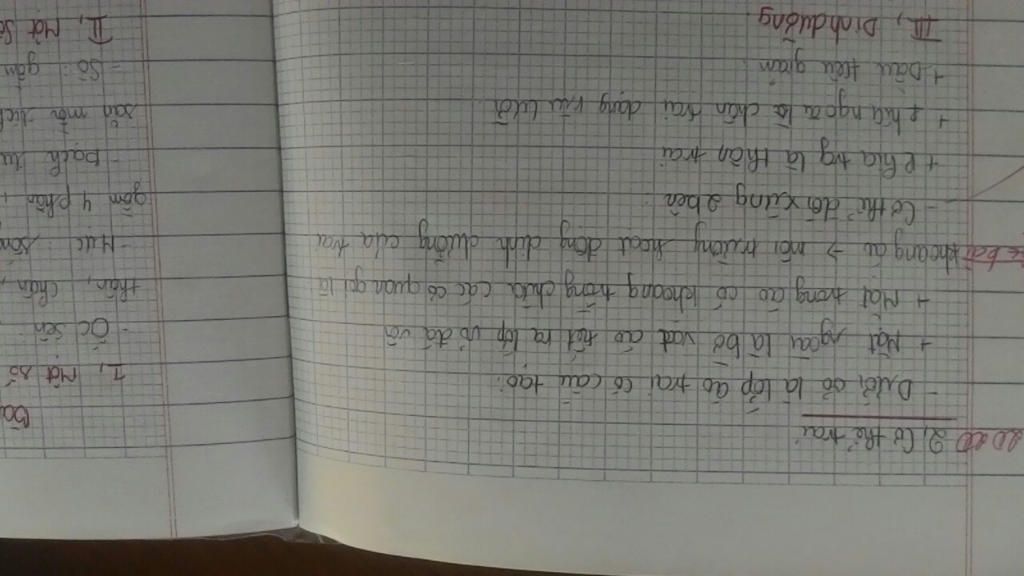 2, Cơ thể trai
- Dưới vỏ là lớp áo trai có cấu tạo:
+ Mặt ngoài là bờ vạt áo tiết ra lớp vỏ đá vôi
+ Mặt trong áo có khoang trống chứa các cơ quan gọi là
khoang áo → môi trường hoạt động dinh dưỡng của trai
- Cơ thể đối xứng 2 bên:
+ Phía trg là thân trai
+ Phía ngoài là chân trai dạng rìu lưỡi
+ Đầu tiêu giảm
III, Dinh dưỡng
I, Một số
- Ốc sên:
thân, chân,
- Mực: sống
gồm 4 phần
- Bạch tu
săn mồi tích
- Sò: gồm
II, Một số